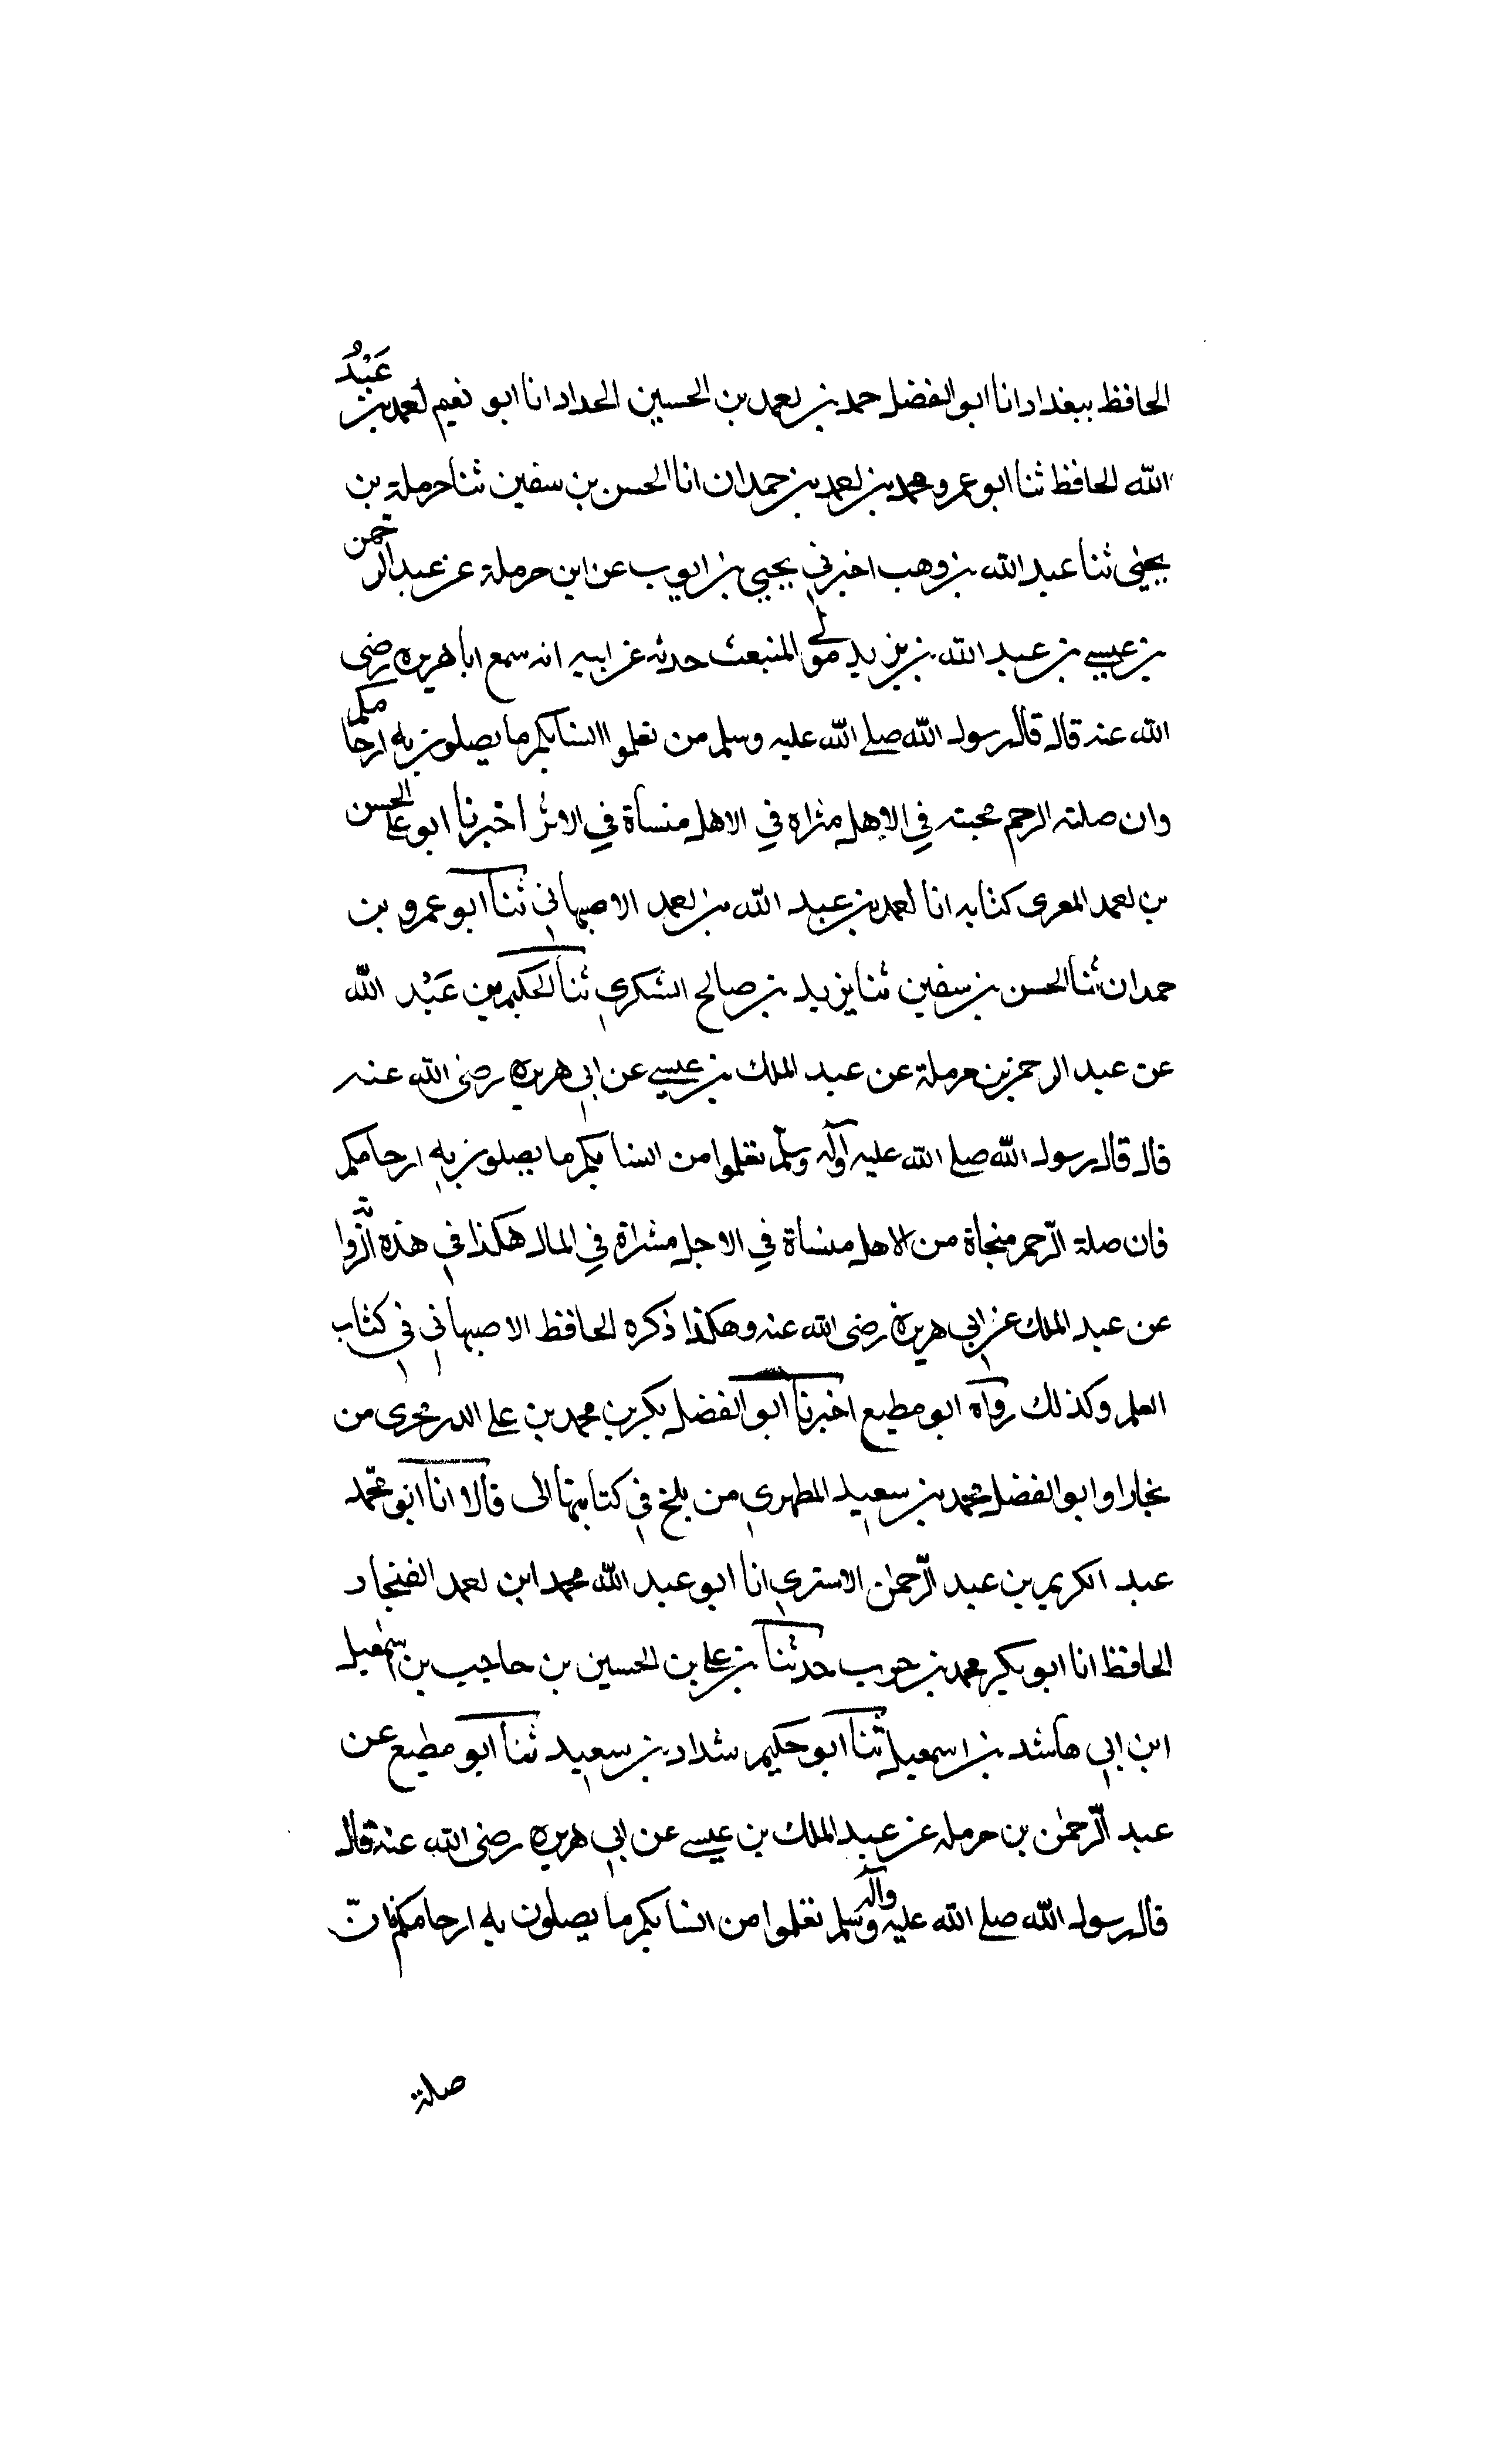 الحافظ ببغداد انا ابو الفضل حمد بن احمد بن الحسين الحداد انا ابو نعيم احمد بن عَبْدُ
الله الحافظ ثنا ابو عمرو محمد بن احمد بن حمدان انا الحسن بن سفين ثنا حرملة بن
يحيى ثنا عبد الله بن وهب اخبرني يحيى بن ايوب عن ابن حرملة عن عبد الرحمن
بن عيسى بن عبد الله بن يزيد مولى المنبعث حدثه عن ابيه انه سمع ابا هريره رضى
الله عنه قال قال رسول الله صلى الله عليه وسلم من تعلموا انسابكم ما يصلون به ارحامكم
وان صلته الرحم محبته في الاهل مثراه في الاهل منسأة في الاثر اخبرنا ابو على الحسن
بن احمد المعرى كتابه انا احمد بن عبد الله بن احمد الاصبهاني ثنا ابو عمرو بن
حمدان ثنا الحسن بن سفين ثنا يزيد بن صالح اليشكري ثنا الحكيم بن عَبْد الله
عن عبد الرحمن بن حرملة عن عبد الملك بن عيسى عن ابي هريره رضى الله عنه
قال قال رسول الله صلى الله عليه وآله وسلم تعلموا من انسابكم ما يصلون به ارحامكم
فان صلة الرّحم منجاة من الاهل منسأة في الاجل مشراة في المال هكذا في هذه الرّوا ية
عن عبد الملك عن ابي هريرة رضى الله عنه وهكذا ذكره الحافظ الاصبهاني في كتاب
العلم وكذلك رواه ابو مطيع اخبرنا ابو الفضل بكر بن محمد بن على الدر محرى من
بخارا و ابو الفضل محمد بن سعيد المطهري من بلخ في كتابتهما الى قالا انا ابو محمّد
عبد الكريم بن عبد الرّحمٰن الاسترى انا ابو عبد الله محمد ابن احمد الغنجار
الحافظ انا ابو بكر محمد بن حرب حدثنا بن على بن الحسين بن حاجب بن اسمٰعيل
ابن ابي هاشد بن اسمعيل ثنا ابو حكيم شداد بن سعيد ثنا ابو مطيع عن
عبد الرّحمٰن بن حرمله عن عبد الملك بن عيسى عن ابي هريره رضى الله عنه قال
قال رسول الله صلى الله عليه وآله وسلم تعلموا من انسابكم ما يصلون به ارحامكم فانّ
صلة